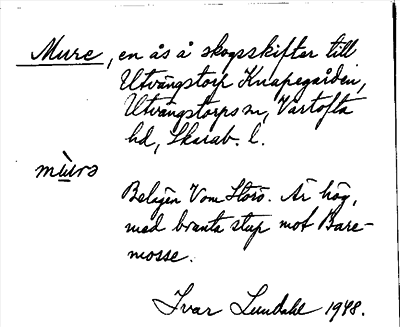 Mure, en ås å skogsskiften till
Utvängstorp Knapegården,
Utvängstorps sn, Vartofta
hd, Skarab. l.
mùrə
Belägen V om Storö. Är hög,
med branta stup mot Bare-
mosse.
Ivar Lundahl 1948.